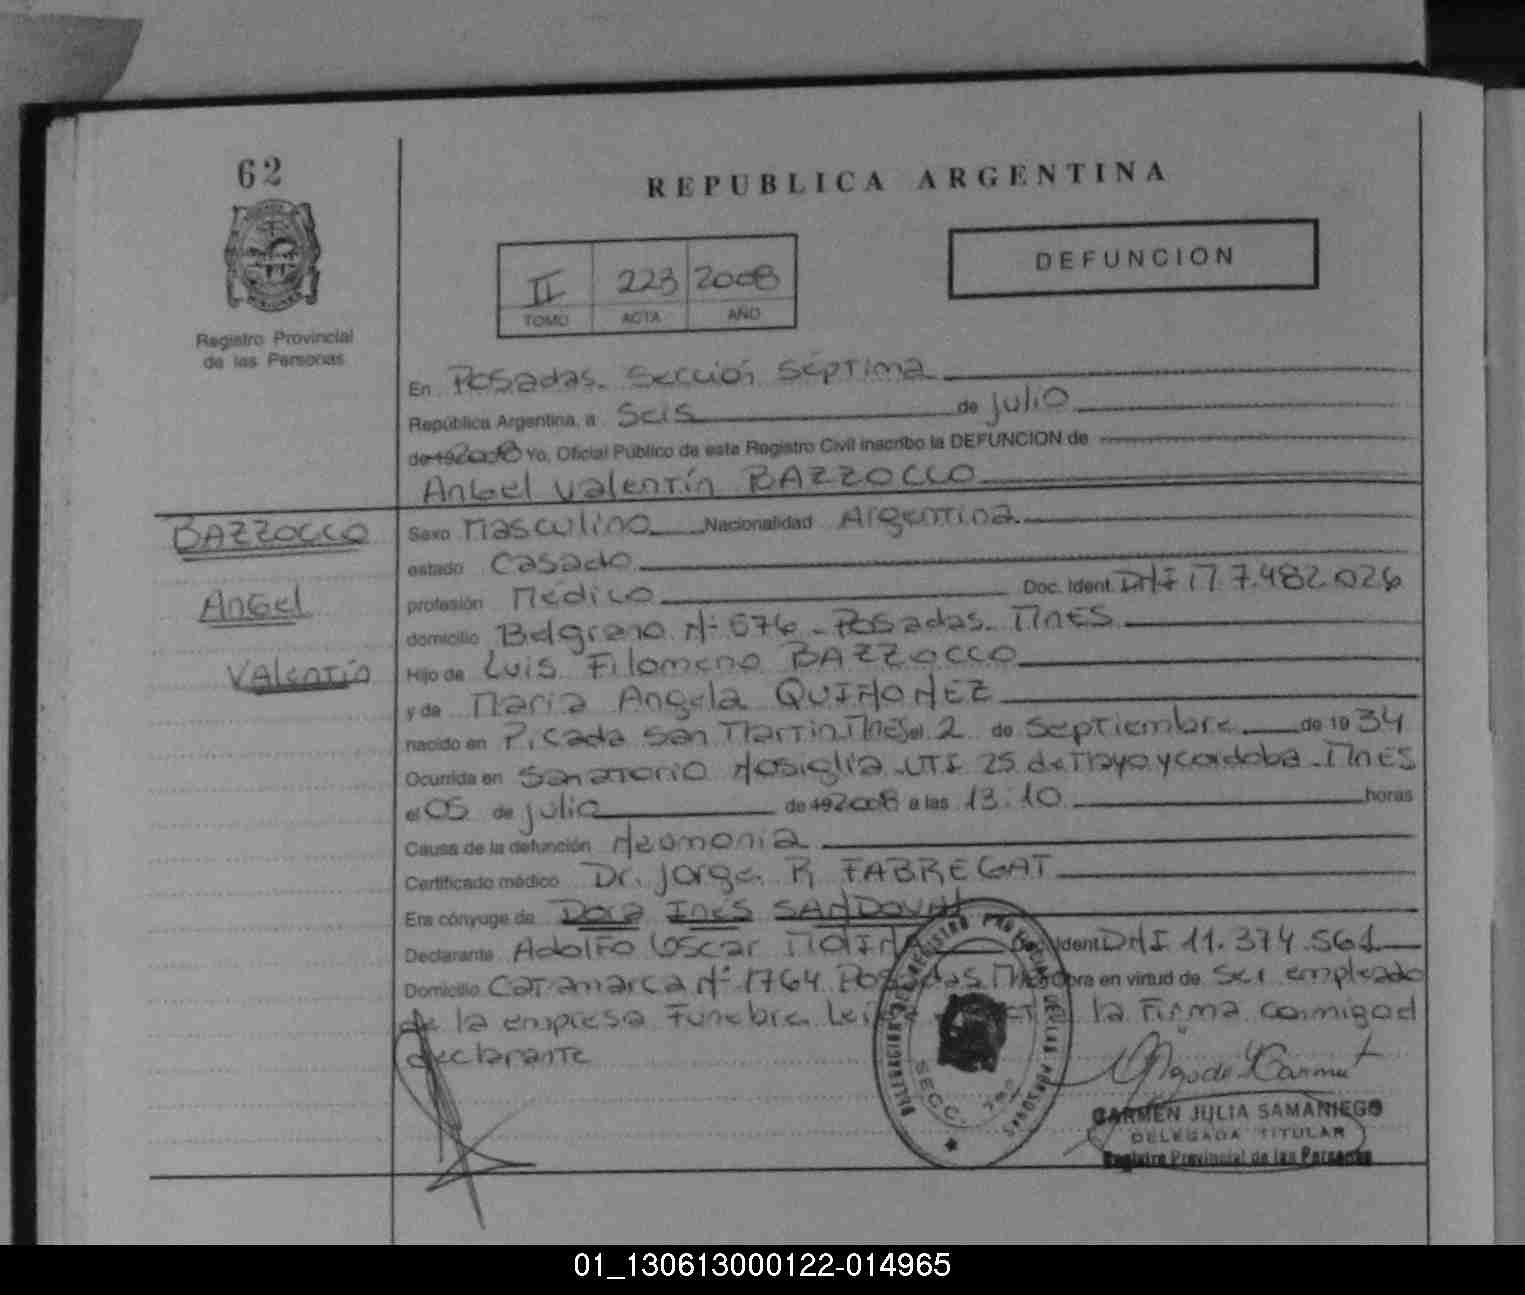 62
REPUBLICA ARGENTINA
II 223 2008
TOMO ACTA AÑO
DEFUNCION
Registro Provincial
de las Personas
En Posadas. Sección Séptima
República Argentina, a Seis de julio
de 19 2008 Yo, Oficial Público de este Registro Civil inscribo la DEFUNCION de
Angel Valentín BAZZOCCO
BAZZOCCO
Angel
Valentín
Sexo Masculino Nacionalidad Argentina
estado Casado
profesión Médico Doc. Ident. DNI 7.482.026
domicilio Belgrano Nº 676 - Posadas - Mnes
Hijo de Luis Filomeno BAZZOCCO
y de Maria Angela QUIÑONEZ
nacido en Picada San Martin Mnes el 2 de Septiembre de 19 34
Ocurrida en Sanatorio Nosiglia - UTI 25 de Mayo y Cordoba - Mnes
el 05 de julio de 19 2008 a las 13:10 horas
Causa de la defunción Neomonia
Certificado médico Dr. Jorge R FABREGAT
Era cónyuge de Dora Inés SANDOVAL
Declarante Adolfo Oscar Doc. Ident DNI 11.374.561
Domicilio Catamarca Nº 1764 Posadas Mnes Obra en virtud de ser empleado
de la empresa Funebre la Firma conmigo el
declarante
DELEGACION REGISTRO PROVINCIAL DE LAS PERSONAS
SECC. 7ma
CARMEN JULIA SAMANIEGO
DELEGADA TITULAR
Registro Provincial de las Personas
01_130613000122-014965